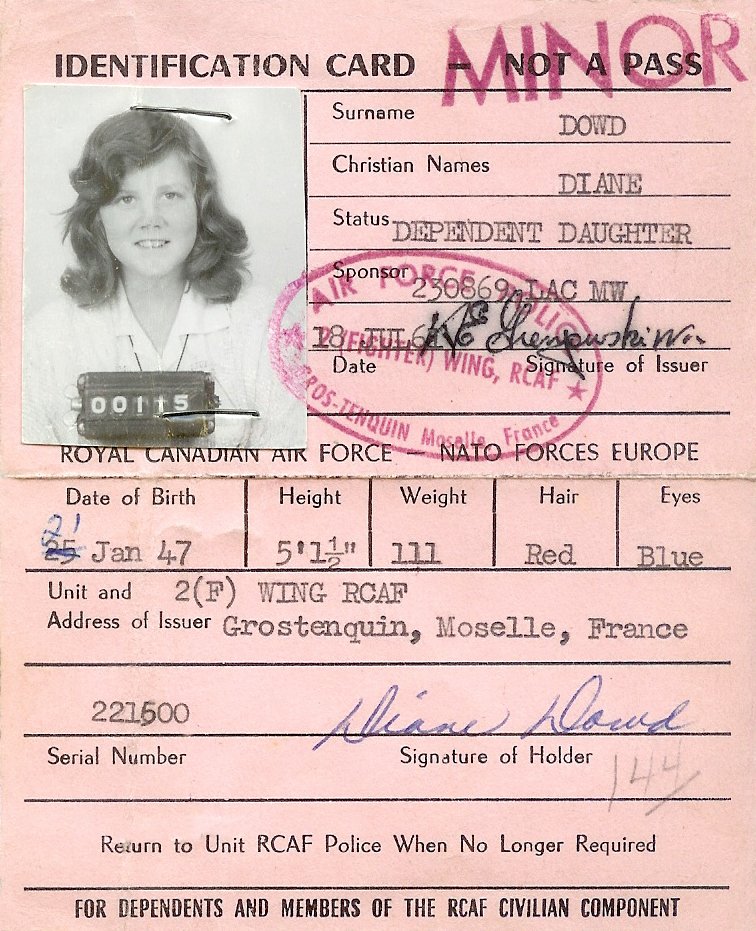 MINOR
IDENTIFICATION CARD — NOT A PASS
Surname DOWD
Christian Names DIANE
Status DEPENDENT DAUGHTER
Sponsor 230869 LAC MW
18 JUL
Date Signature of Issuer
AIR FORCE POLICE
2 (FIGHTER) WING, RCAF
GROS-TENQUIN Moselle, France
00115
ROYAL CANADIAN AIR FORCE — NATO FORCES EUROPE
Date of Birth Height Weight Hair Eyes
21
25 Jan 47 5'1½" 111 Red Blue
Unit and 2(F) WING RCAF
Address of Issuer Grostenquin, Moselle, France
221500 Diane Dowd
Serial Number Signature of Holder
144
Return to Unit RCAF Police When No Longer Required
FOR DEPENDENTS AND MEMBERS OF THE RCAF CIVILIAN COMPONENT